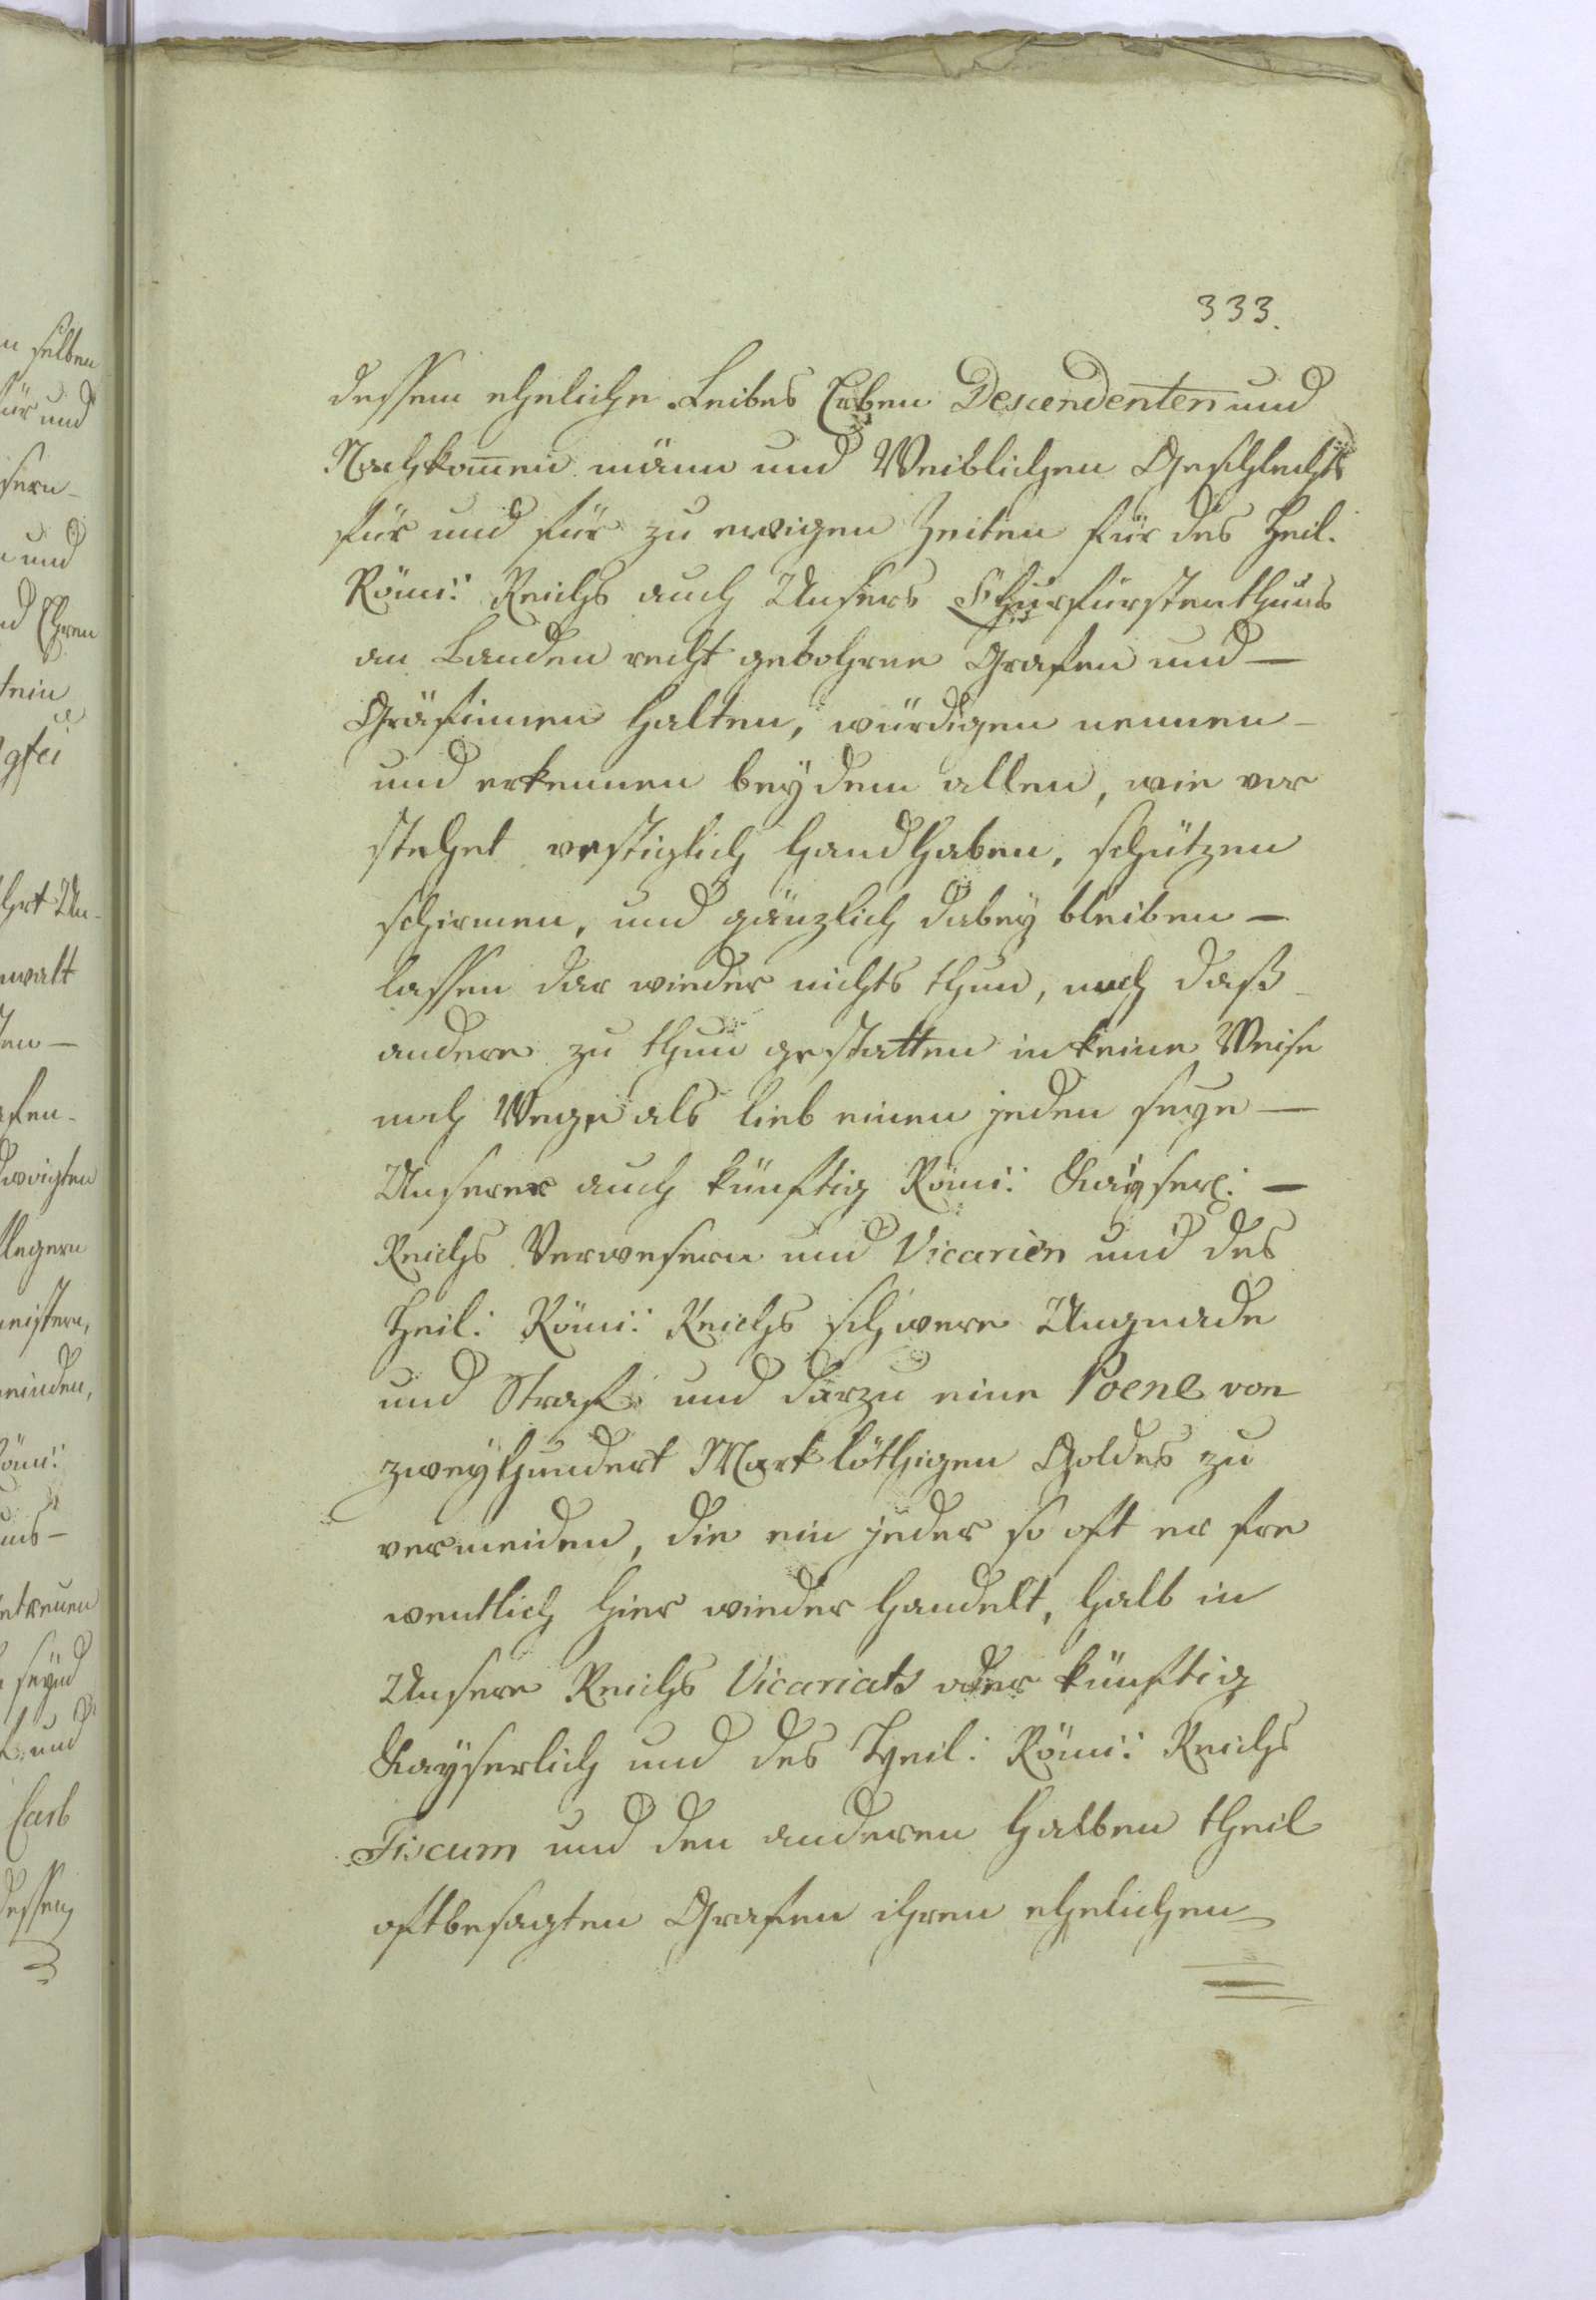 333.
dessen eheliche Leibes Erben Descendenten und
Nachkom̄en männ und Weiblichen Geschlechts
für und für zu ewigen Zeiten für des Heil.
Röm: Reichs auch Unsers Churfürstenthums
an Landen recht gebohrne Grafen und —
Gräfinnen halten, würdigen nennen -
und erkennen bey dem allen, wie vor
stehet vestiglich handhaben, schützen
schirmen, und gänzlich dabey bleiben —
lassen dar wieder nichts thun, noch daß -
andere zu thun gestatten in keine Weise
noch Wege als lieb einen jeden seye —
Unserer auch künftig Röm: Kayserl: —
Reichs Verwesern und Vicarien und des
Heil: Röm: Reichs schwere Ungnade
und Straf und darzu eine Poene von
zweyhundert Mark löthigen Goldes zu
vermeiden, die ein jeder so oft er fre
ventlich hier wieder handelt, halb in
Unsere Reichs Vicariats oder künftig
Kayserlich und des Heil: Röm: Reichs
Fiscum und den anderen halben theil
oftbesagten Grafen ihren ehelichen
n selben
für und
und
nd Ehren
walt
legern
meistern,
meinden,
Röm:
etreuen
seynd
und
Carl
dessen